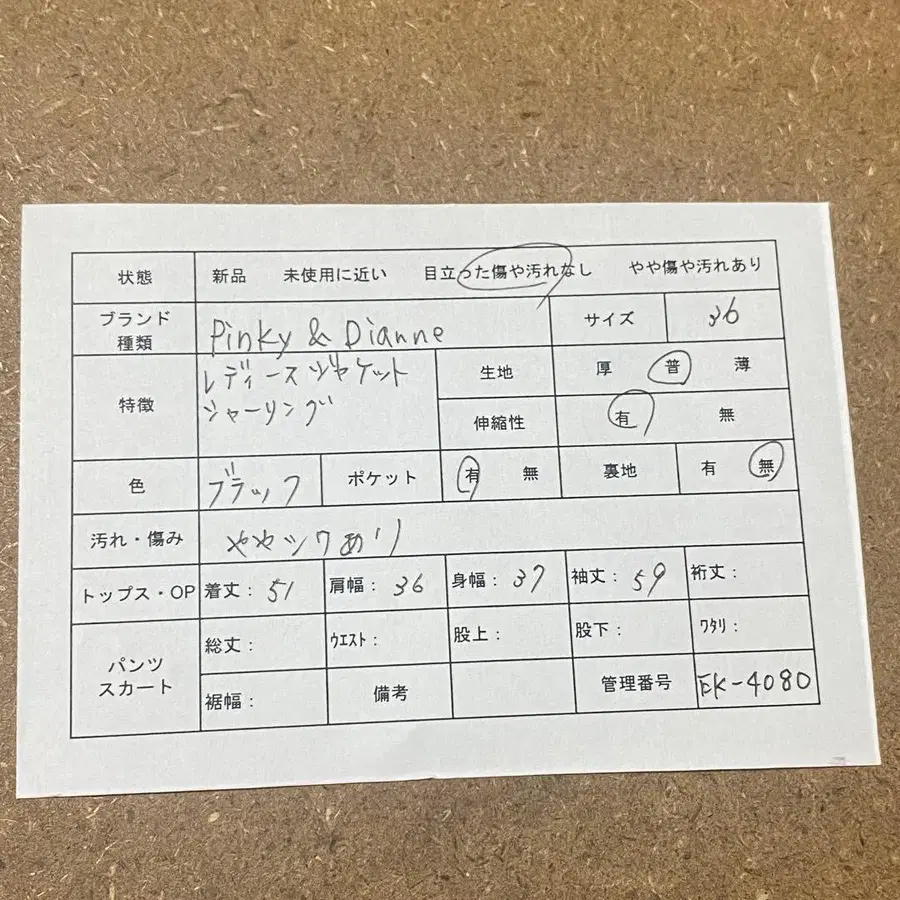 状態 新品 未使用に近い 目立った傷や汚れなし やや傷や汚れあり
ブランド
種類
Pinky & Dianne
サイズ 36
特徴
レディースジャケット
シャーリング
生地 厚 普 薄
伸縮性 有 無
色 ブラック ポケット 有 無 裏地 有 無
汚れ・傷み ややシワあり
トップス・OP 着丈: 51 肩幅: 36 身幅: 37 袖丈: 59 裄丈:
パンツ
スカート
総丈: ウエスト: 股上: 股下: ワタリ:
裾幅: 備考 管理番号 EK-4080